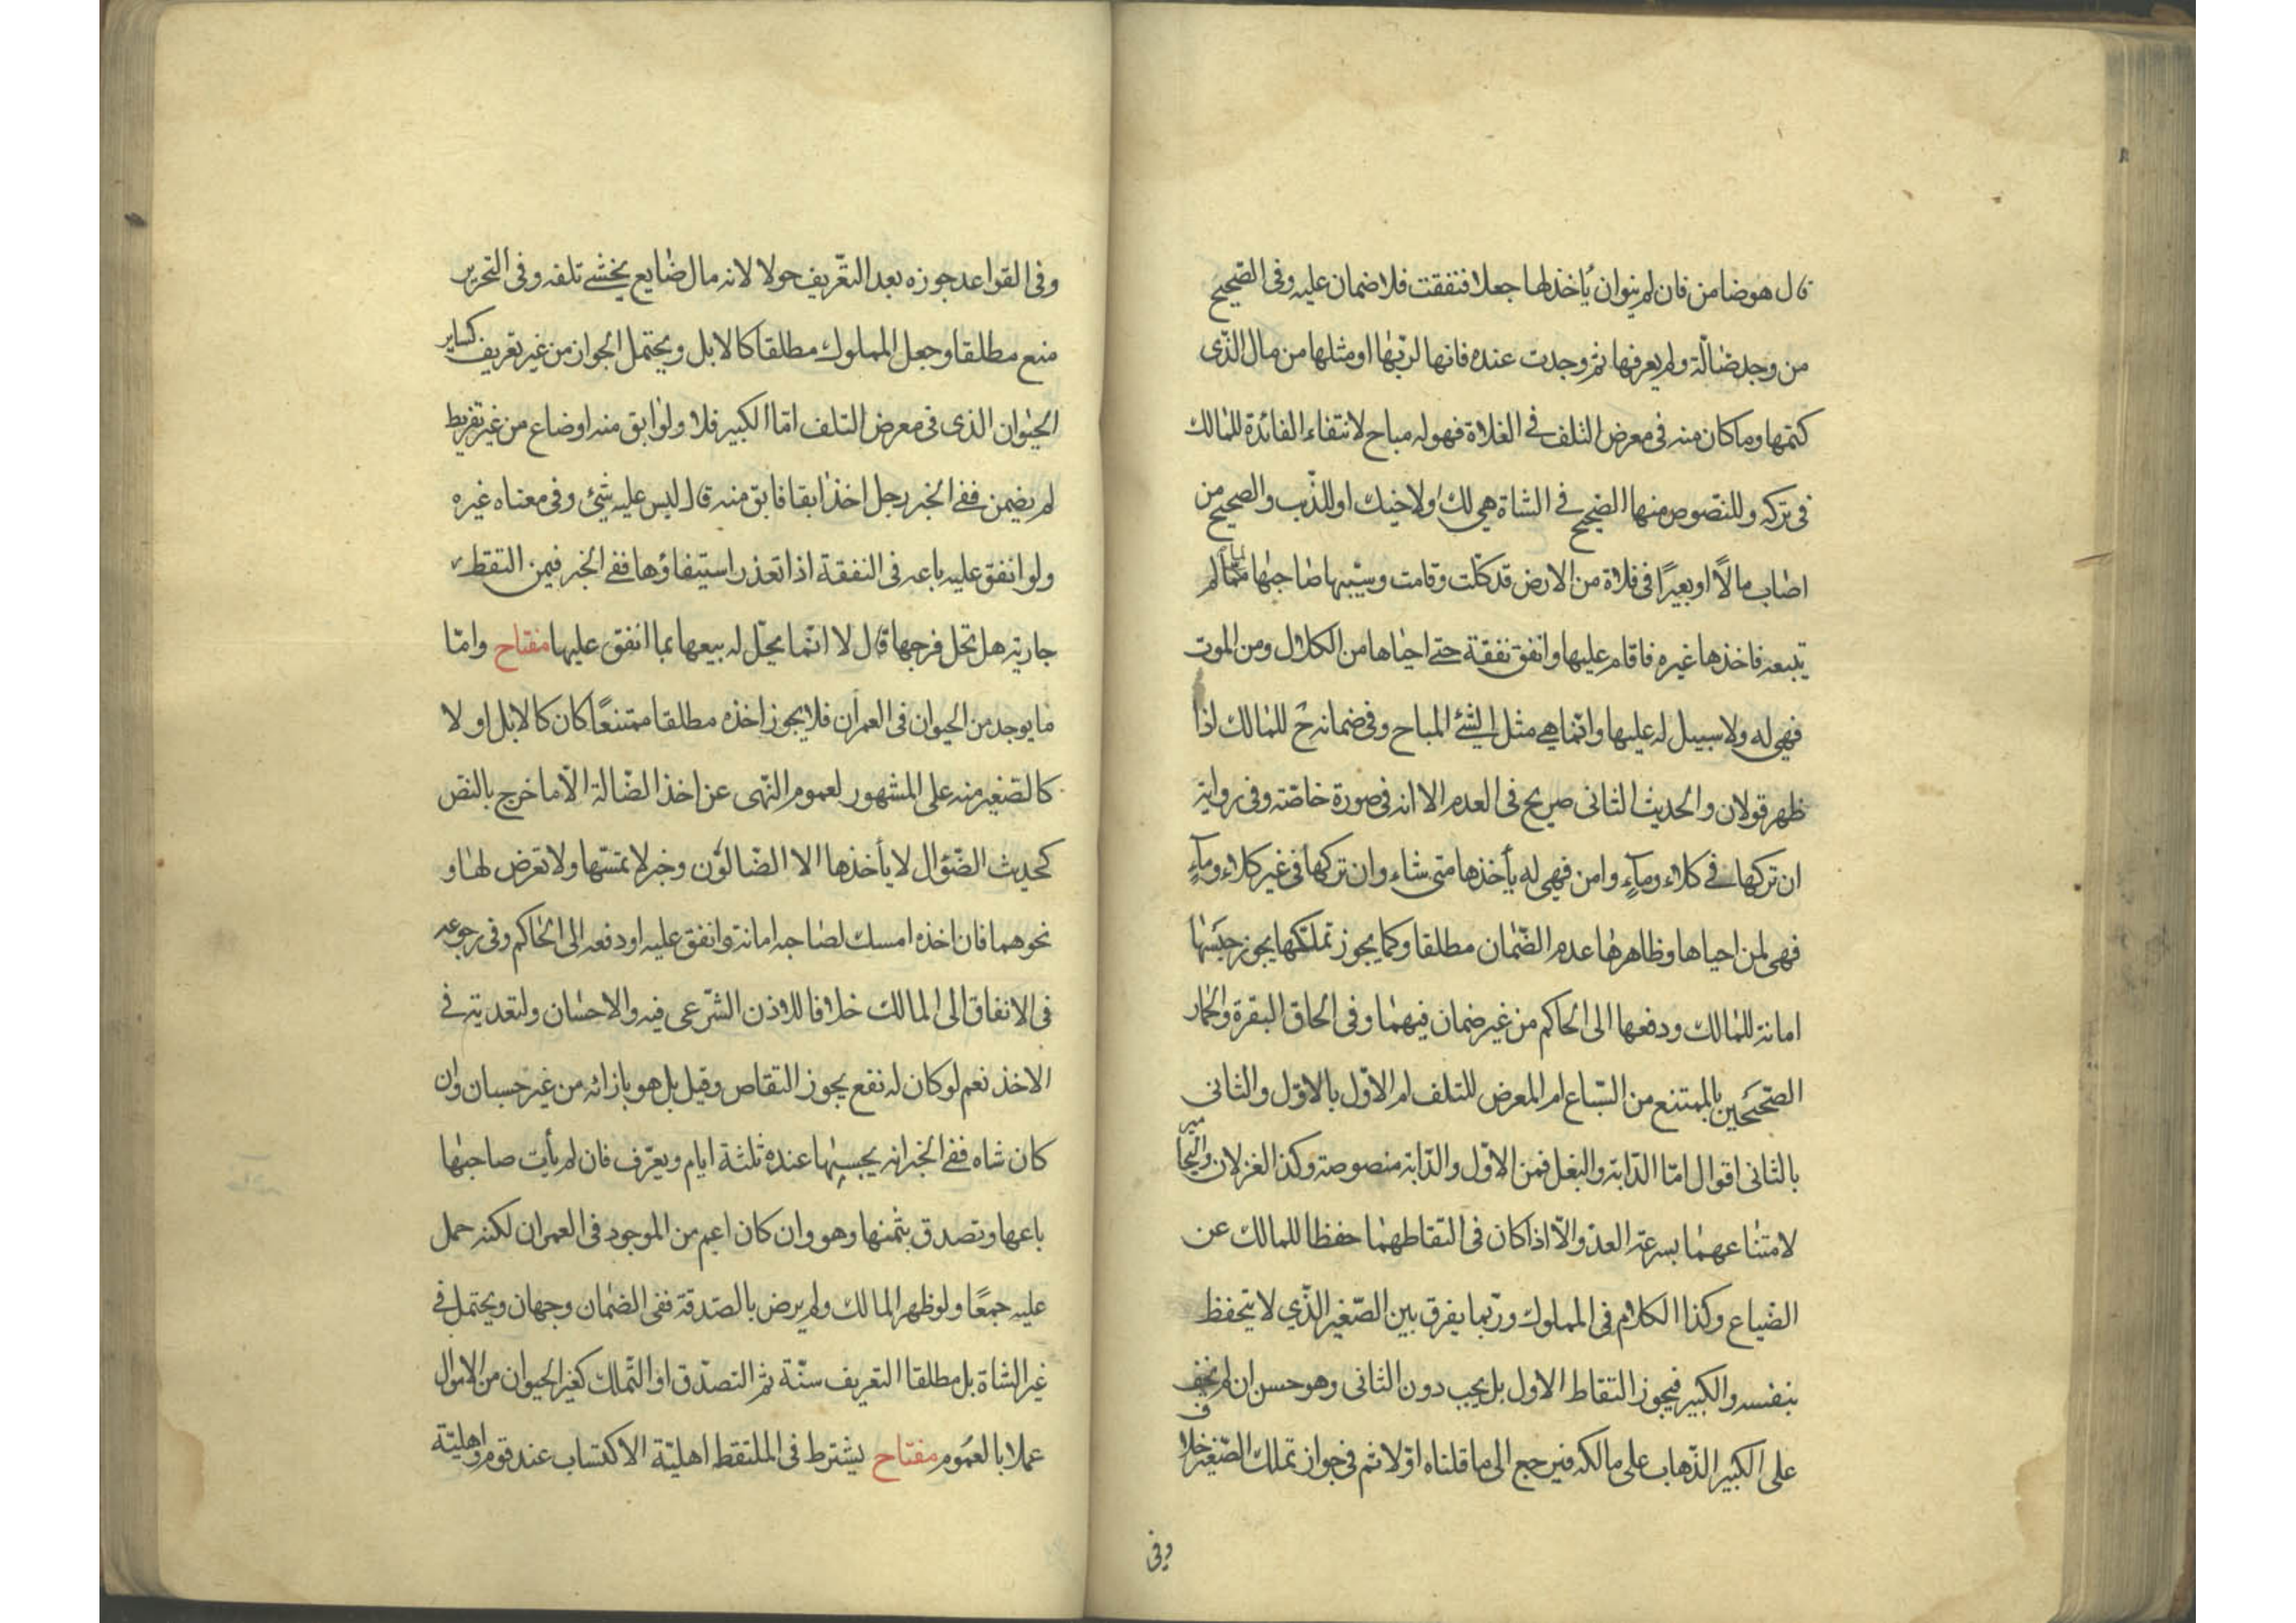 قال هو ضامن فان لم ينو ان يأخذ لها جعلا فنفقت فلا ضمان عليه وفى الصّحيح
من وجد ضالّة ولم يعرفها ثم وجدت عنده فانها لربّها او مثلها من مال الذّى
كتمها وما كان منه فى معرض التلف فى الفلاة فهو له مباح لانتفاء الفائدة للمالك
فى تركه وللنّصوص منها الصّحيح فى الشاة هى لك او لاخيك او للذّئب والصحيح من
اصاب مالًا او بعيرًا فى فلاة من الارض قد كلّت وقامت وسيّبها صاحبها ممّا لم
يتبعه فاخذها غيره فاقام عليها وانفق نفقة حتى احياها من الكلال ومن الموت
فهى له ولا سبيل له عليها وانّما هى مثل الشئ المباح وفى ضمانه ح للمالك اذا
ظهر قولان والحديث الثانى صريح فى العدم الا انه فى صورة خاصّة وفى رواية
ان تركها فى كلاء وماٍء وامن فهى له يأخذها متى شاء وان تركها فى غير كلاء وماٍء
فهى لمن احياها وظاهرها عدم الضّمان مطلقا وكما يجوز تملكها يجوز حبسها
امانة للمالك ودفعها الى الحاكم من غير ضمان فيهما وفى الحاق البقرة والحمار
الصّحيحين بالممتنع من السّباع ام المعرض للتلف ام الاوّل بالاوّل والثانى
بالثانى اقوال امّا الدّابة والبغل فمن الاوّل والدّابة منصوصة وكذا الغزلان واليحامير
لامتناعهما بسرعة العدو الّا اذا كان فى التقاطهما حفظا للمالك عن
الضياع وكذا الكلام فى المملوك وربّما يفرق بين الصّغير الذّي لا يتحفظ
بنفسه والكبير فيجوز التقاط الاول بل يجب دون الثانى وهو حسن ان لم يخف
على الكبير الذّهاب على مالكه فيرجع الى ما قلناه اوّلا ثم فى جواز تملك الصّغير خلاف
وفى
وفى القواعد جوزه بعد التعّريف حولا لانه مال ضايع يخشى تلفه وفى التحرير
منع مطلقا وجعل المملوك مطلقا كالابل ويحتمل الجواز من غير تعريف كساير
الحيوان الذى فى معرض التلف امّا الكبير فلا ولو ابق منه او ضاع من غير تفريط
لم يضمن ففى الخبر رجل اخذ ابقا فابق منه قال ليس عليه شئ وفى معناه غيره
ولو انفق عليه باعه فى النفقة اذا تعذر استيفاؤها ففى الخبر فيمن التقط
جارية هل يحل فرجها قال لا انّما يحلّ له بيعها بما انفق عليها مفتاح وامّا
ما يوجد من الحيوان فى العمران فلا يجوز اخذه مطلقا ممتنعًا كان كالابل او لا
كالصّغير منه على المشهور لعموم النّهى عن اخذ الضّالة الّا ما خرج بالنص
كحديث الضّؤال لا يأخذها الا الضّالوّن وخبر لا تمسّها ولا تعرض لها و
نحوهما فان اخذه امسك لصاحبه امانة وانفق عليه او دفعه الى الحاكم وفى رجوعه
فى الانفاق الى المالك خلافا للاذن الشّرعى فيه والاحسان ولتعديّته فى
الاخذ نعم لو كان له نفع يجوز التقاص وقيل بل هو بازائه من غير حسبان وان
كان شاه ففى الخبر انه يحبسها عنده ثلثة ايام ويعرّف فان لم يأت صاحبها
باعها وتصدق بثمنها وهو وان كان اعم من الموجود فى العمران لكنه حمل
عليه جمعًا ولو ظهر المالك ولم يرض بالصّدقة ففى الضمان وجهان ويحتمل فى
غير الشاة بل مطلقا التعريف سنّة ثم التصدّق او التّملك كغير الحيوان من الاموال
عملا بالعموم مفتاح يشترط فى الملتقط اهليّة الاكتساب عند قوم واهليّة